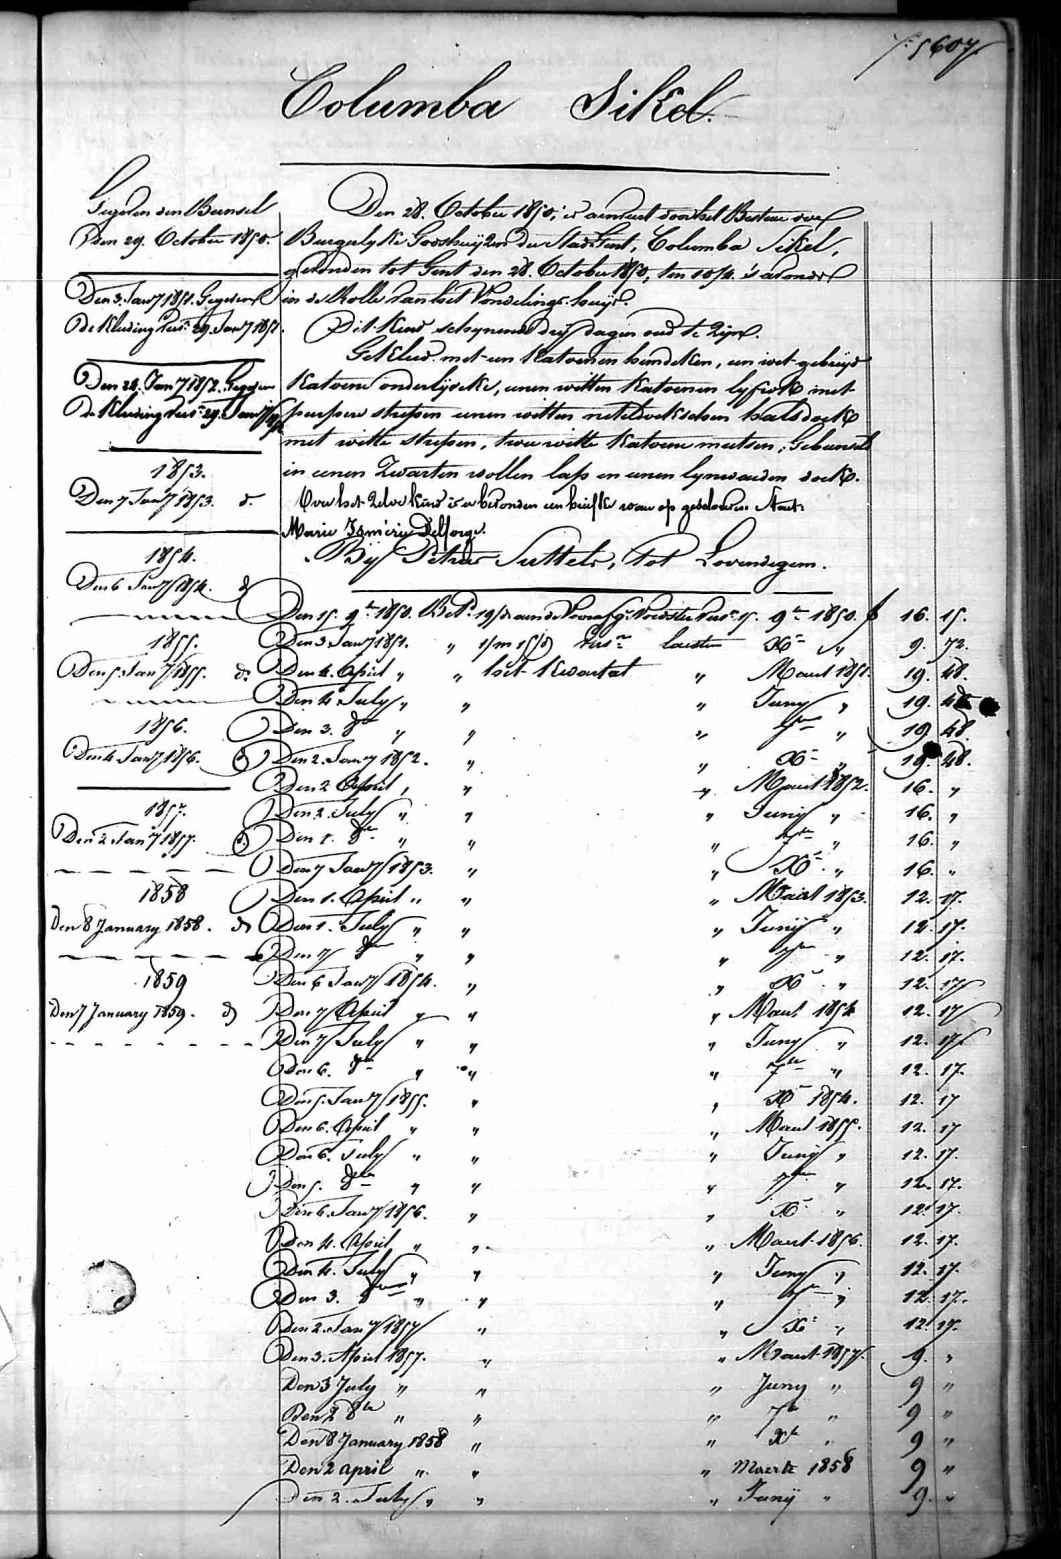 5607
Columba Sikel.
Gegeven den Bunsel
den 29. October 1850.
Den 3. Jany 1851. Gegeven
de Kleding 29. Jany 1851.
Den 24. Jany 1852. Gegeven
de Kleding 29. Jany
1853.
Den 7 Jany 1853. do
1854.
Den 6 Jany 1854. do
1855.
Den 5 Jany 1855. do
1856.
Den 4 Jany 1856. do
1857.
Den 2 Jany 1857. do
1858
Den 8 January 1858. do
1859
Den 7 January 1859. do
Den 28. October 1850, is aenveert door het Bestuer der
Burgerlyke Godshuyzen der Stad Gent, Columba Sikel,
gevonden tot Gent den 28. October 1850, ten 10 1/4. 's avonds
in de Rolle van het Vondelings-huys.
Dit Kind schynende dry dagen oud te zyn.
Gekleed met een Katoenen hemdeken, een wit gebreyd
Katoene onderlyfke, eenen witten Katoenen lyfrok met
purpere strepen eenen witten neteldoekschen halsdoek
met witte strepen, twee witte Katoene mutsen, Gebunseld
in eenen Zwarten wollen lap en eenen lynwaeden doek.
Over het zelve kind is er bevonden een briefke waer op geschreven staet:
Marie Delforge.
By Petrus Suttels, tot Lovendegem.
Den 15. 9bre 1850. Bet. 19/d aen de Voorafge. Voedster 15. 9bre 1850. f 16. 15.
Den 3 Jany 1851. " laesten Xbre " 9. 72.
Den 4. April " " het Kwartael " Maert 1851. 19. 48.
Den 4 July " " " Juny " 19. 48.
Den 3. 8bre " " " 7bre " 19 48.
Den 2. Jany 1852. " " Xbre " 19. 48.
Den 2 April " " " Maert 1852. 16. "
Den 2. July " " " Juny " 16. "
Den 1. 8bre " " " 7bre " 16. "
Den 7 Jany 1853. " " Xbre " 16. "
Den 1. April " " " Maert 1853. 12. 17.
Den 1. July " " " Juny " 12. 17.
Den 7 8bre " " " 7bre " 12. 17.
Den 6 Jany 1854. " " Xbre " 12. 17
Den 7 April " " " Maert 1854 12. 17
Den 7 July " " " Juny " 12. 17
Den 6. 8bre " " " 7bre " 12. 17.
Den 5. Jany 1855. " " Xbre 1854. 12. 17
Den 6. April " " " Maert 1855. 12. 17
Den 6. July " " " Juny " 12. 17.
Den 5. 8bre " " " 7bre " 12. 17.
Den 6. Jany 1856. " " Xbre " 12. 17.
Den 4. April " " " Maert 1856. 12. 17.
Den 4. July " " " Juny " 12. 17.
Den 3. 8bre " " " 7bre " 12. 17.
Den 2. Jany 1857 " " Xbre " 12. 17.
Den 3. April 1857. " " Maert 1857. 9. "
Den 3 July " " " Juny " 9 "
Den 2 8bre " " " 7bre " 9 "
Den 8 January 1858 " " Xbre " 9 "
Den 2 april " " " Maerte 1858 9 "
Den 2. July " " " Junij " 9. "